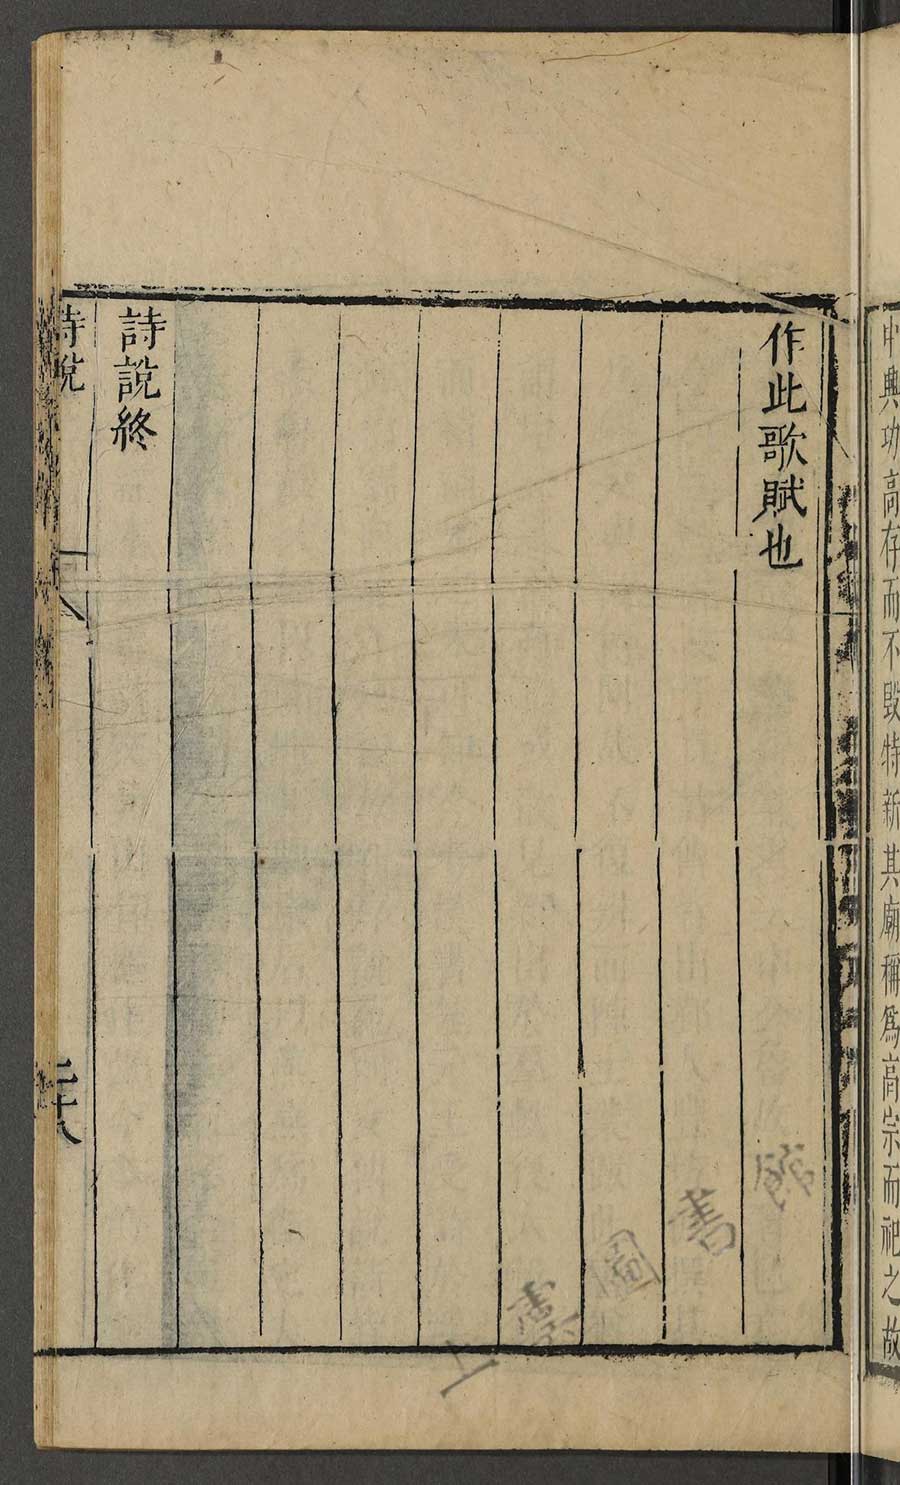 中興功高存而不毀特新其廟稱爲高宗而祀之故
作此歌賦也
詩說終
詩說
二十八
上海圖書館